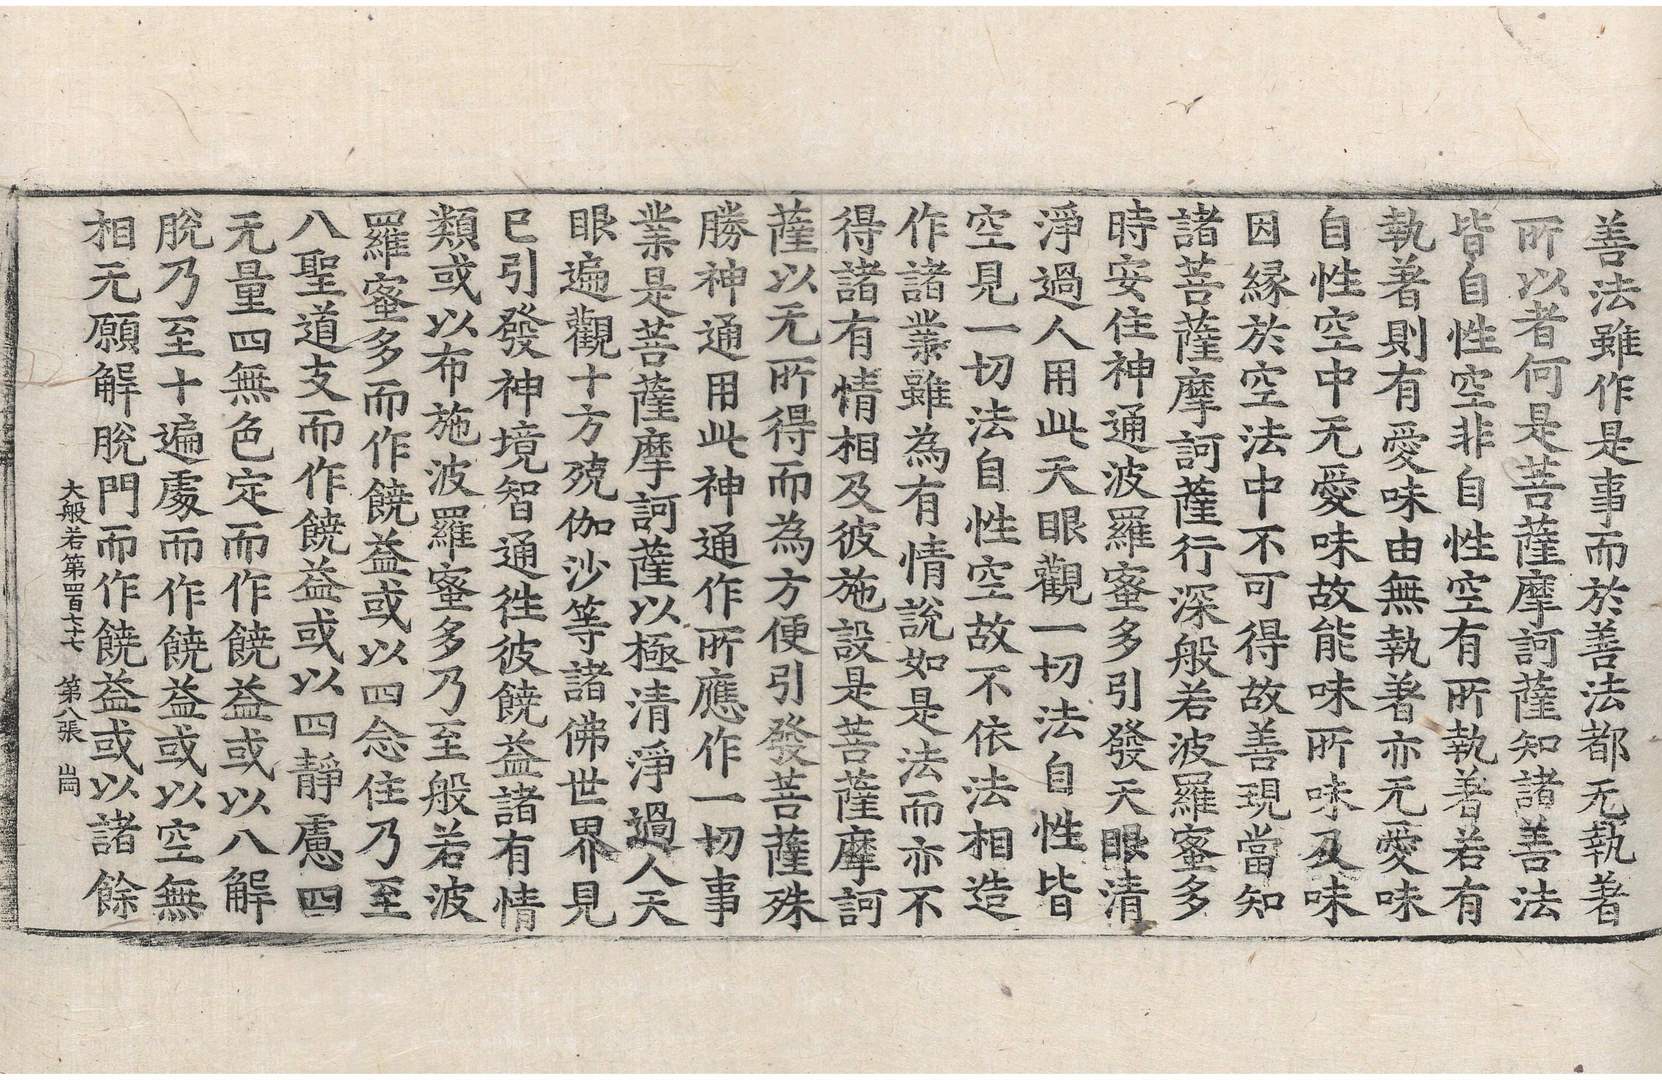 善法雖作是事而於善法都无執著
所以者何是菩薩摩訶薩知諸善法
皆自性空非自性空有所執著若有
執著則有愛味由無執著亦无愛味
自性空中无愛味故能味所味及味
因縁於空法中不可得故善現當知
諸菩薩摩訶薩行深般若波羅蜜多
時安住神通波羅蜜多引發天眼清
淨過人用此天眼觀一切法自性皆
空見一切法自性空故不依法相造
作諸業雖為有情說如是法而亦不
得諸有情相及彼施設是菩薩摩訶
薩以无所得而為方便引發菩薩殊
勝神通用此神通作所應作一切事
業是菩薩摩訶薩以極清淨過人天
眼遍觀十方殑伽沙等諸佛世界見
已引發神境智通徃彼饒益諸有情
類或以布施波羅蜜多乃至般若波
羅蜜多而作饒益或以四念住乃至
八聖道支而作饒益或以四靜慮四
无量四無色定而作饒益或以八解
脫乃至十遍處而作饒益或以空無
相无願解脫門而作饒益或以諸餘
大般若第四百七十七 第八張 崗